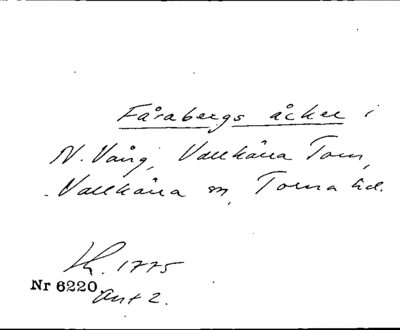 Fårabergs åker i
N. Vång, Vallkärra Torn,
Vallkärra sn, Torna hd.
Lh. 1775
Nr 6220.
Akt 2.